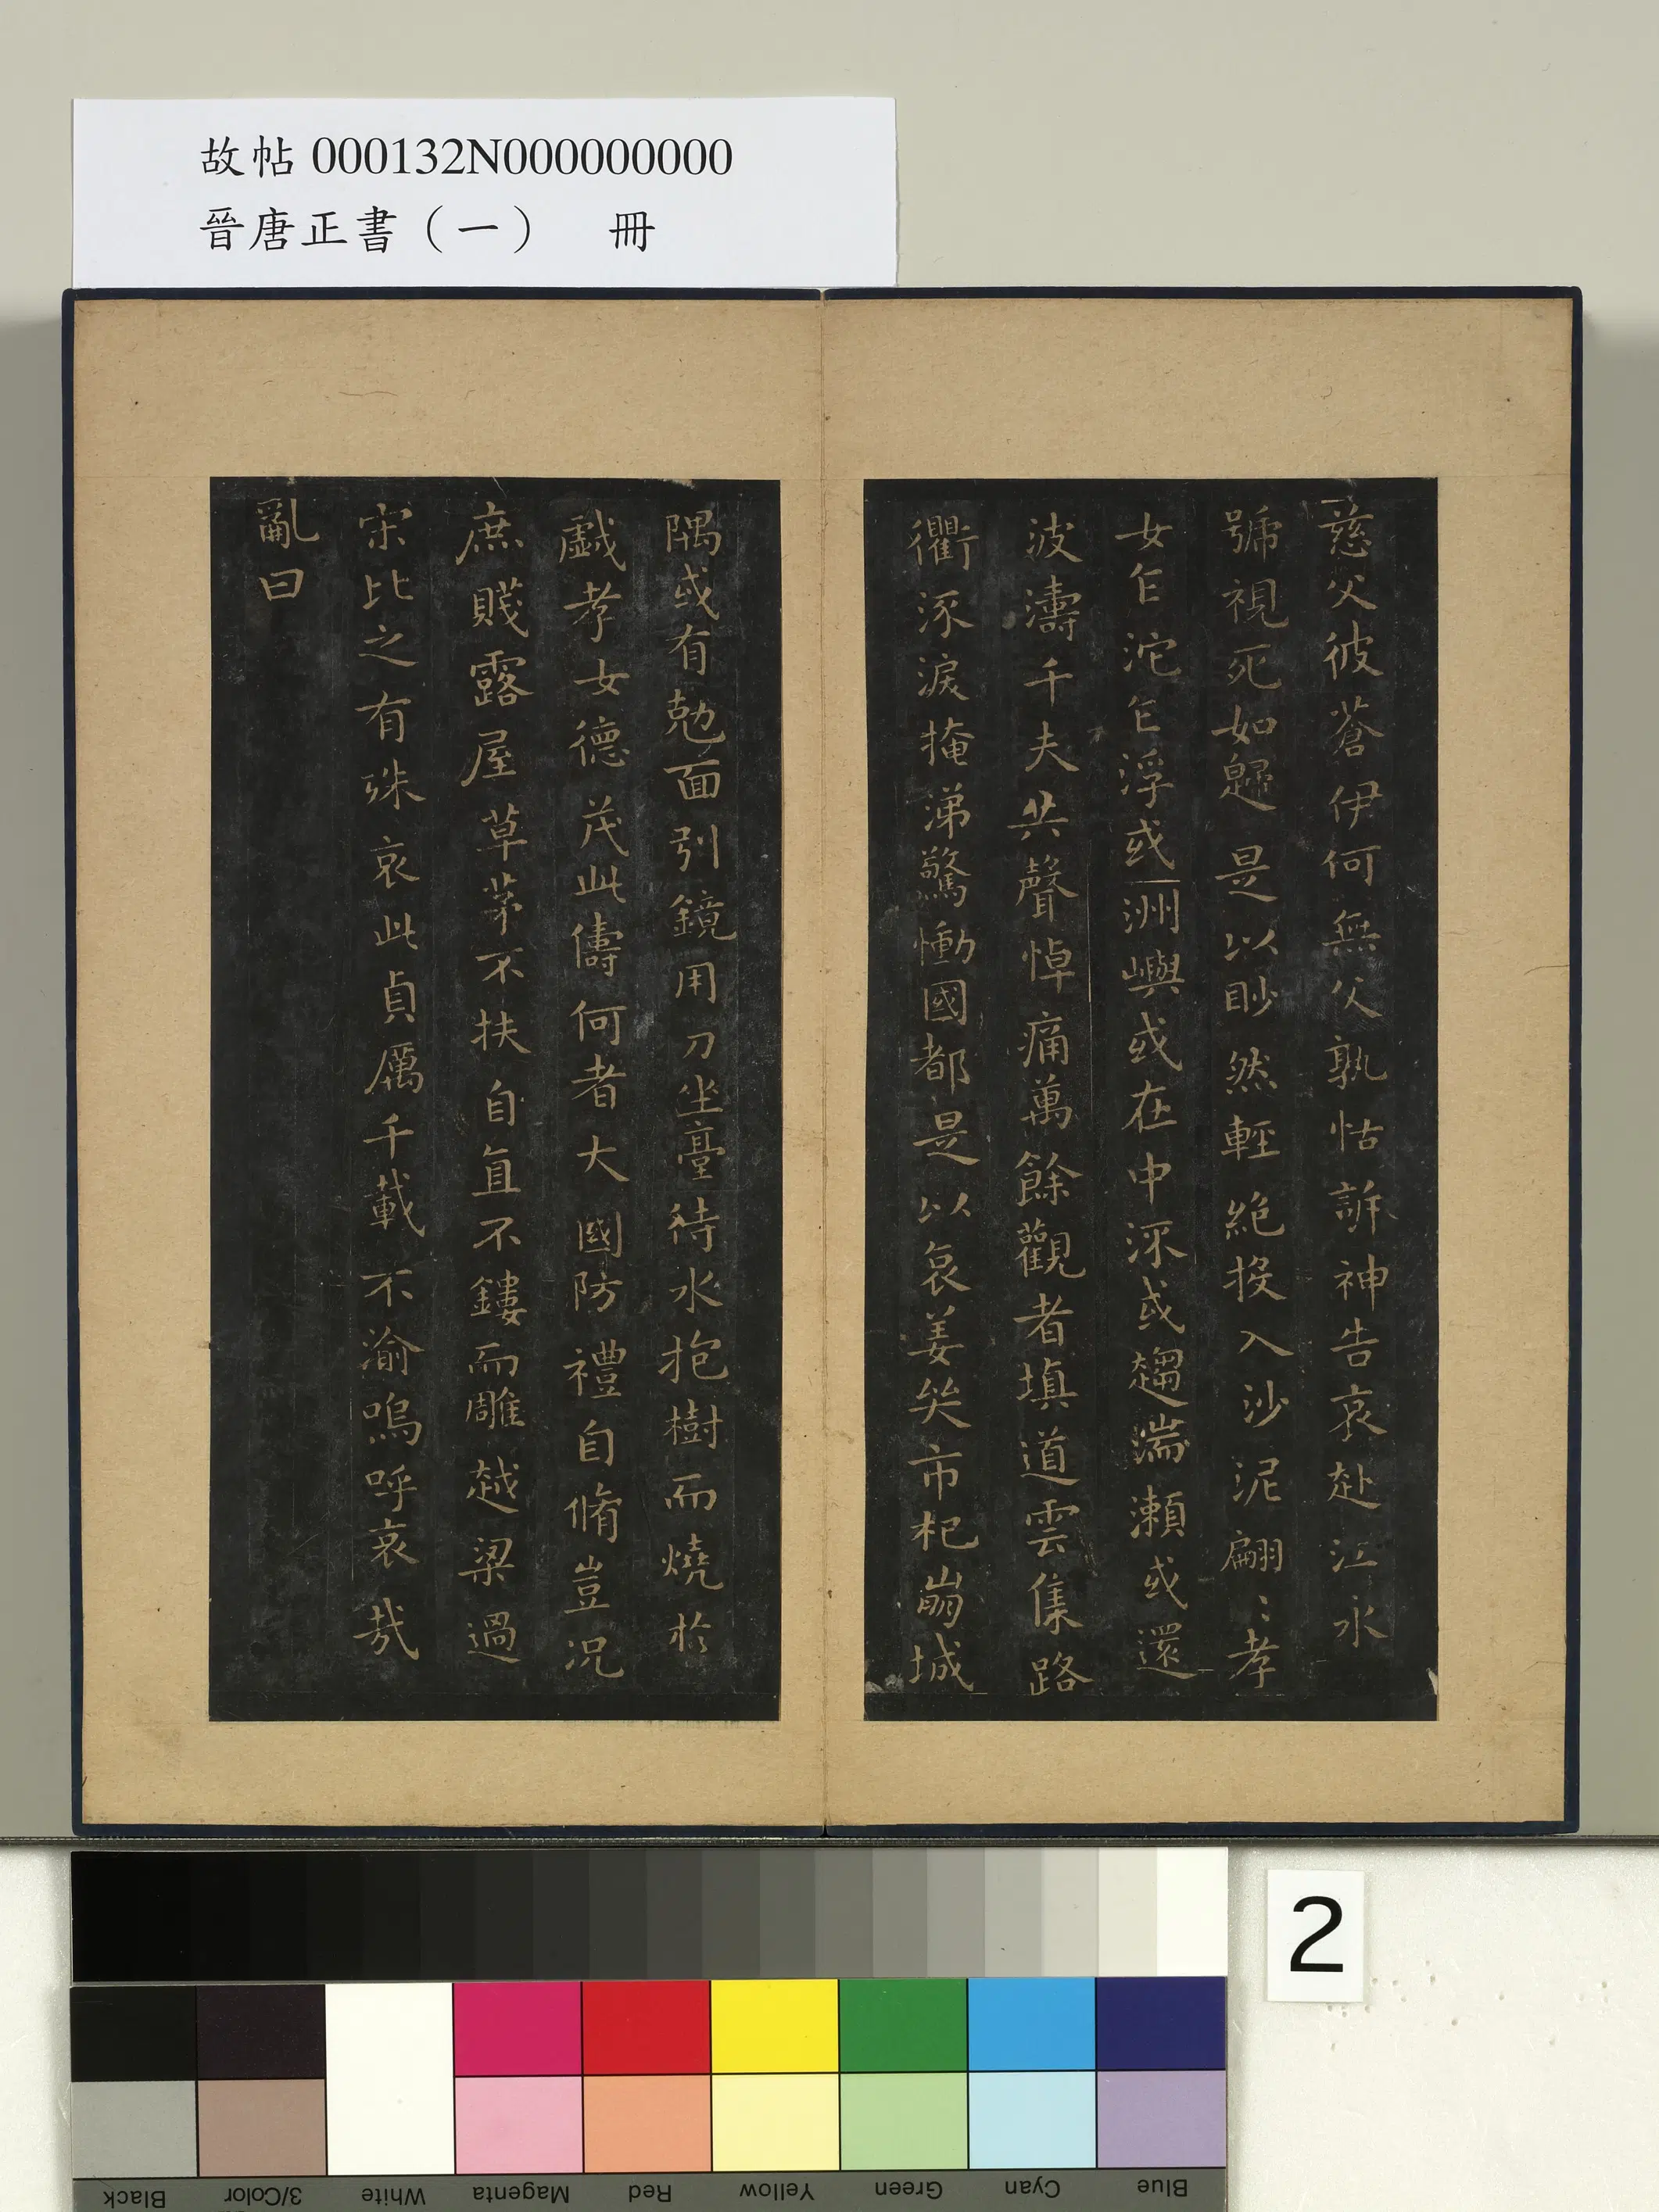 故帖 000132N000000000
晉唐正書（一） 冊
慈父彼蒼伊何無父孰怙訴神告哀赴江水
號視死如歸是以眇然輕絕投入沙泥翩〻孝
女乍沱乍浮或洲嶼或在中沠或趨湍瀨或還
波濤千夫共聲悼痛萬餘觀者填道雲集路
衢泳淚掩涕驚慟國都是以哀姜哭市杞崩城
隅或有勊面引鏡用刀坐臺待水抱樹而燒於
戱孝女德茂此儔何者大國防禮自脩豈況
庶賤露屋草茅不扶自直不鏤而雕越梁過
宋比之有殊哀此貞厲千載不渝嗚呼哀哉
亂曰
2
Black
3/Color
White
Magenta
Red
Yellow
Green
Cyan
Blue